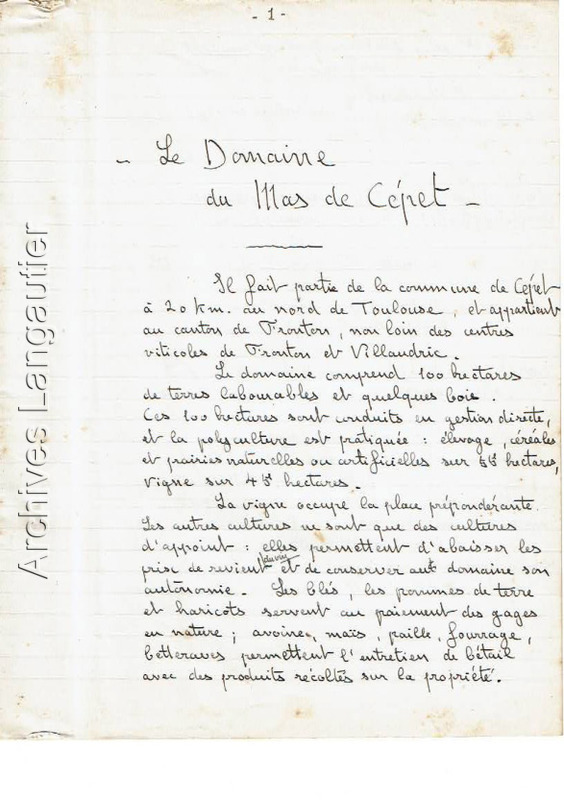 - 1 -
- Le Domaine
du Mas de Cépet -
Il fait partie de la commune de Cépet
à 20 km. au nord de Toulouse, et appartient
au canton de Fronton, non loin des centres
viticoles de Fronton et Villaudric.
Le domaine comprend 100 hectares
de terres labourables et quelques bois.
Ces 100 hectares sont conduits en gestion directe,
et la polyculture est pratiquée : élevage, céréales
et prairies naturelles ou artificielles sur 55 hectares,
vigne sur 45 hectares.
La vigne occupe la place prépondérante.
Les autres cultures ne sont que des cultures
d'appoint : elles permettent d'abaisser les
prix de revient du vin et de conserver au domaine son
autonomie. Les blés, les pommes de terre
et haricots servent au paiement des gages
en nature ; avoine, maïs, paille, fourrage,
betteraves permettent l'entretien de bétail
avec des produits récoltés sur la propriété.
Archives Langautier